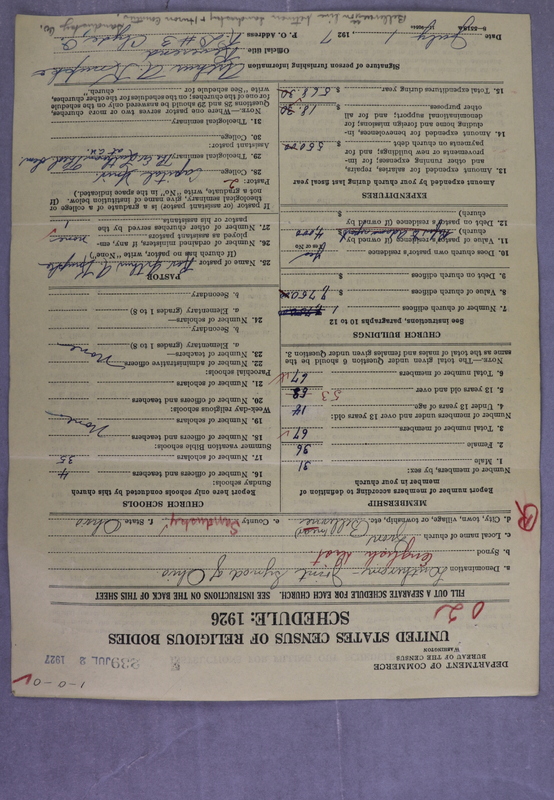 1-0-0
239 JUL 2 1927
DEPARTMENT OF COMMERCE
BUREAU OF THE CENSUS
WASHINGTON
UNITED STATES CENSUS OF RELIGIOUS BODIES
SCHEDULE: 1926
FILL OUT A SEPARATE SCHEDULE FOR EACH CHURCH. SEE INSTRUCTIONS ON THE BACK OF THIS SHEET
a. Denomination Lutheran Joint Synod of Ohio
b. Synod English Dist
c. Local name of church
d. City, town, village, or township, etc. Bellevue
e. County Sandusky f. State Ohio
MEMBERSHIP
Report number of members according to definition of
member in your church
Number of members, by sex:
1. Male 31
2. Female 36
3. Total number of members 67
Number of members under and over 13 years old:
4. Under 13 years of age 14
5. 13 years old and over 53
6. Total number of members 67
NOTE.—The total given under Question 6 should be the
same as the total of males and females given under Question 3.
CHURCH BUILDINGS
See instructions, paragraphs 10 to 12
7. Number of church edifices 1
8. Value of church edifices $
9. Debt on church edifices $
10. Does church own pastor's residence Yes
(Yes or No)
11. Value of pastor's residence (if owned by
church) $ 4,000
12. Debt on pastor's residence (if owned by
church) $
EXPENDITURES
Amount expended by your church during last fiscal year
13. Amount expended for salaries, repairs,
and other running expenses; for im-
provements or new buildings; and for
payments on church debt $ 550.00
14. Amount expended for benevolences, in-
cluding home and foreign missions; for
denominational support; and for all
other purposes $ 18.30
15. Total expenditures during year $ 568.30
CHURCH SCHOOLS
Report here only schools conducted by this church
Sunday schools:
16. Number of officers and teachers 4
17. Number of scholars 35
Summer vacation Bible schools:
18. Number of officers and teachers
19. Number of scholars None
Week-day religious schools:
20. Number of officers and teachers
21. Number of scholars
Parochial schools:
22. Number of administrative officers
23. Number of teachers— None
a. Elementary (grades 1 to 8)
b. Secondary
24. Number of scholars—
a. Elementary (grades 1 to 8)
b. Secondary
PASTOR
25. Name of pastor Rev Arthur A.
(If church has no pastor, write "None")
26. Number of ordained ministers, if any, em-
ployed as assistant pastors none
27. Number of other churches served by the
pastor or his assistants 1
If pastor (or assistant pastor) is a graduate of a college or
theological seminary, give name of institution below. (If
not a graduate, write "No" in the space indicated.)
Pastor:
28. College Capital Univ.
29. Theological seminary
Assistant pastor:
30. College
31. Theological seminary
NOTE.—Where one pastor serves two or more churches,
Questions 28 and 29 should be answered only on the schedule
for one of the churches; on the schedules for the other churches,
write "See schedule for church."
Signature of person furnishing information
Arthur A.
Official title Reverend
P. O. Address R. D. #3 Clyde, O
Date July 1 1927
8-5518A